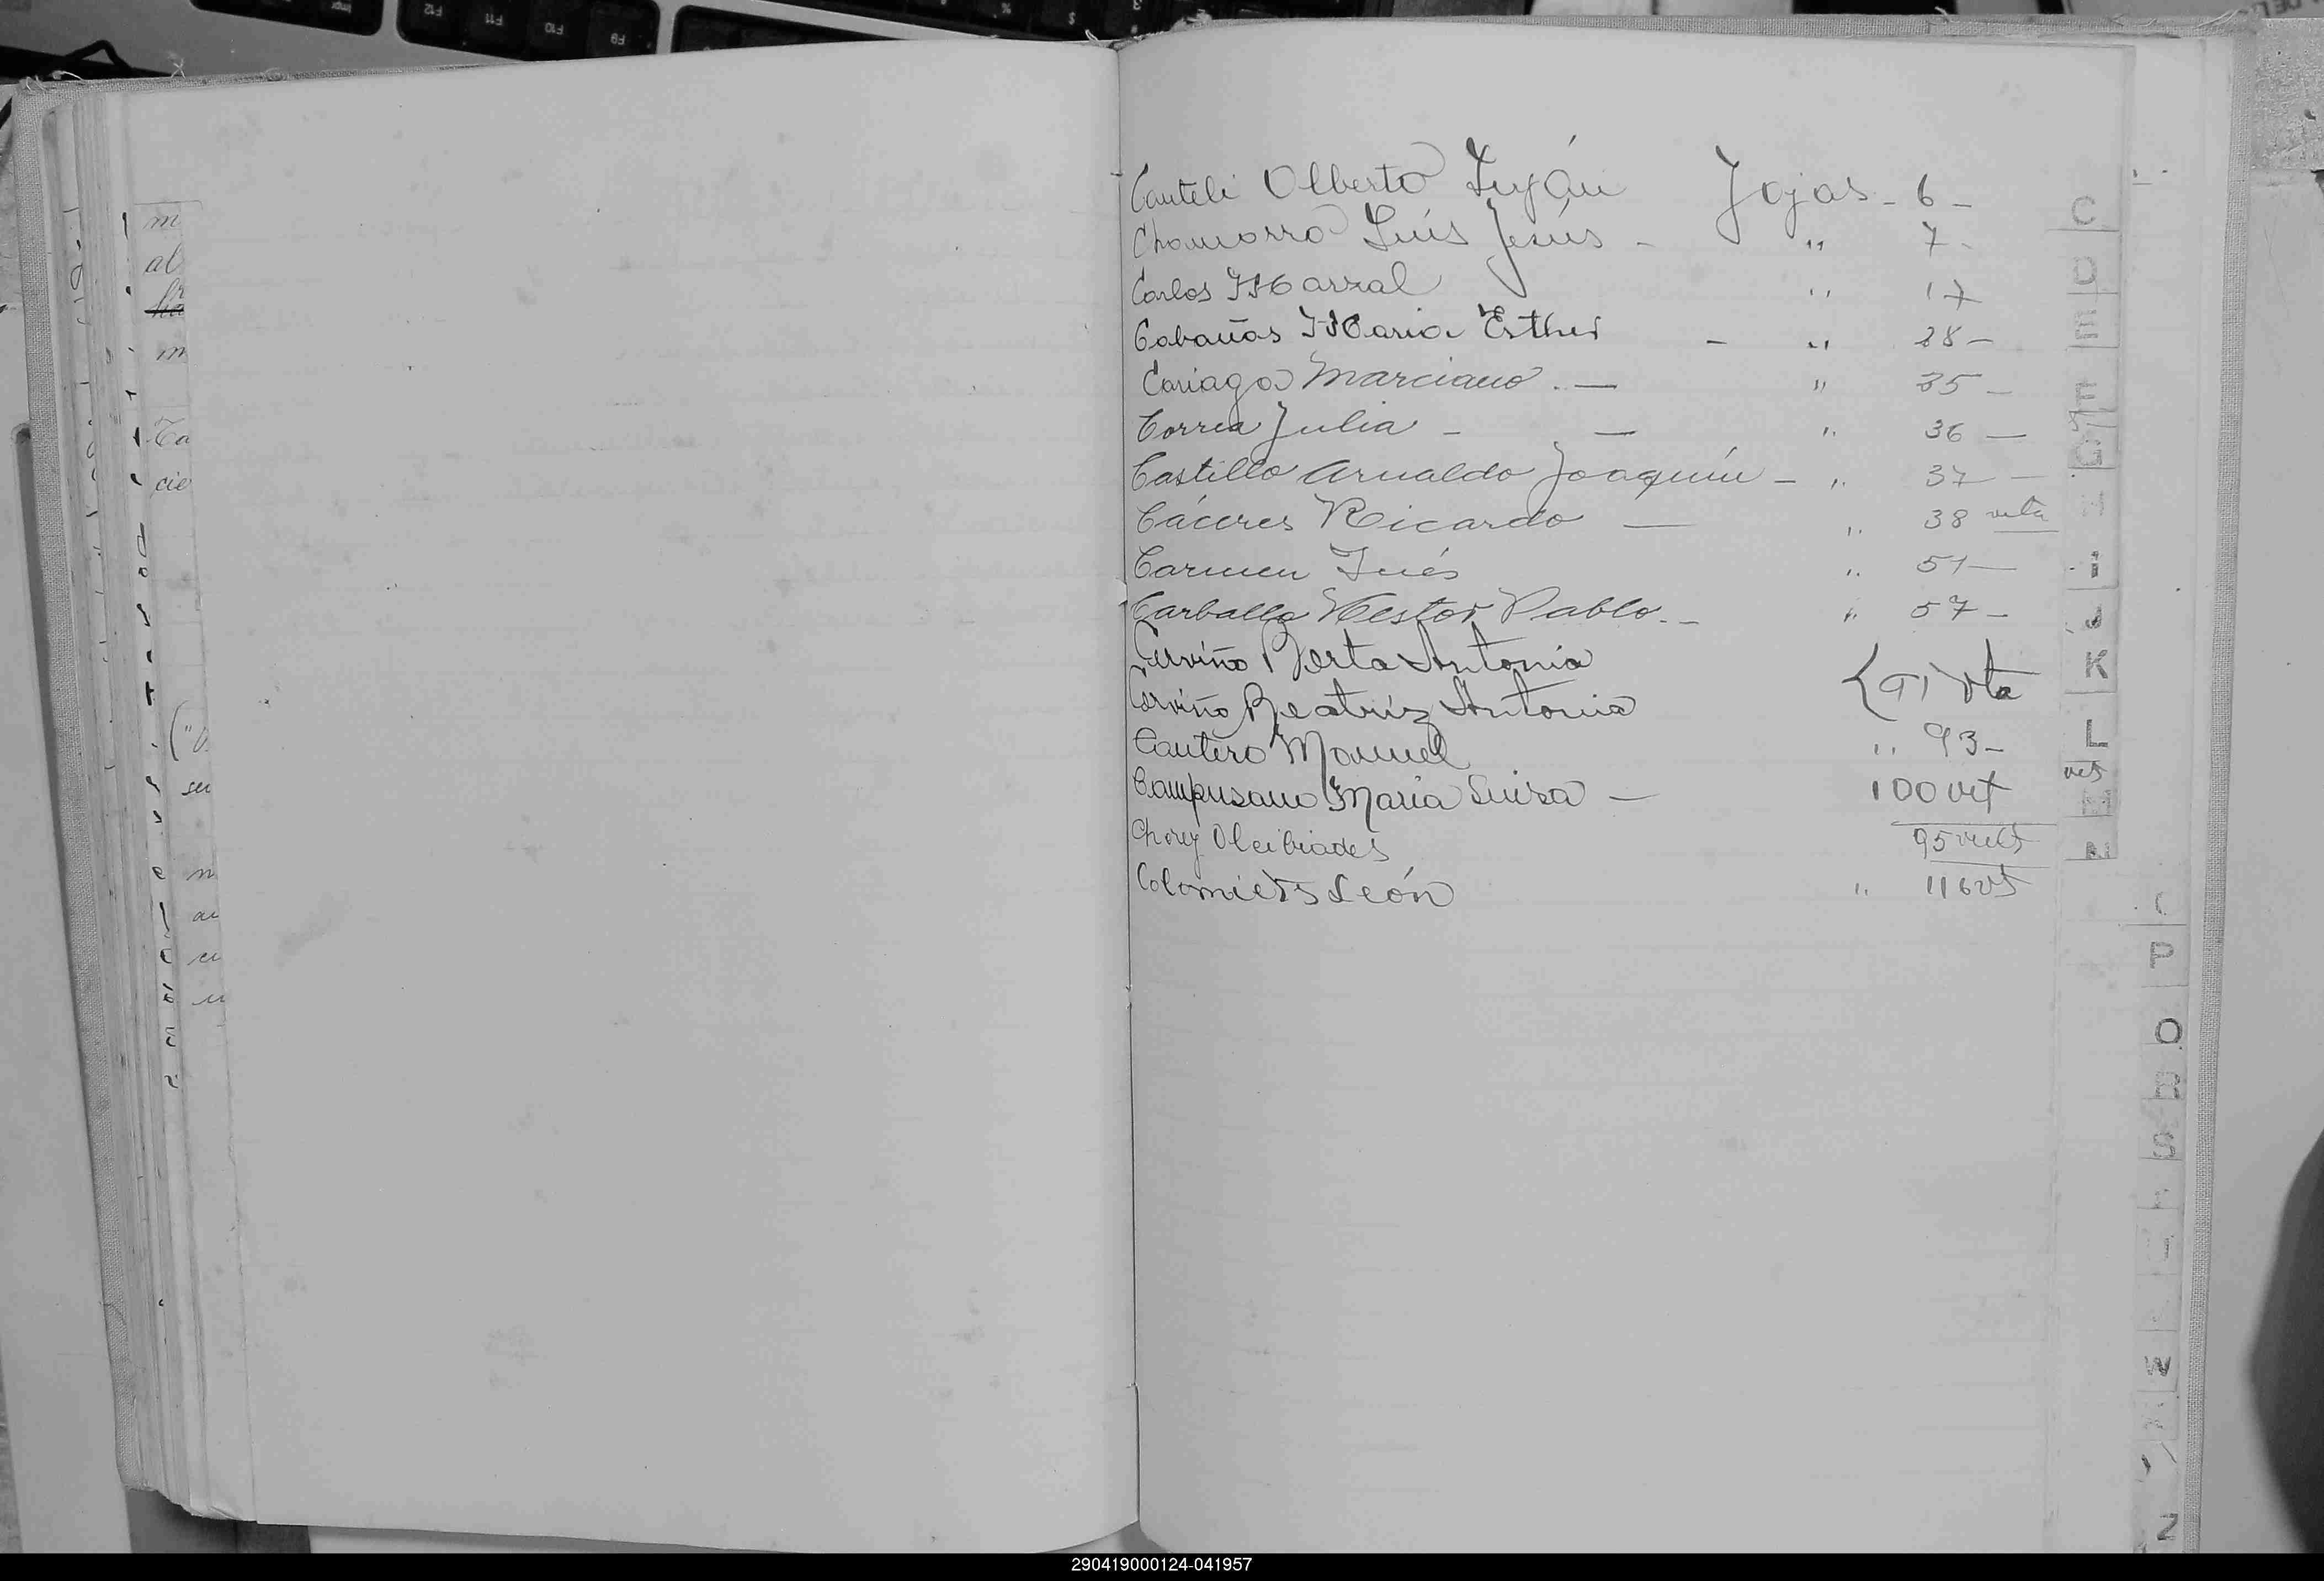 Canteli Alberto Luján Fojas - 6 -
Chamorro Luis Jesús - " 7 -
Carlos Marzal " 17
Cabañas Maria Esther - " 28 -
Cariaga Marciano . — " 35 -
Correa Julia - — " 36 —
Castillo Arnaldo Joaquín - " 37 —
Cáceres Ricardo — " 38 vta
Carmen Inés " 51 —
Carballo Nestor Pablo. - " 57 -
Cerviño Berta Antonia
Cerviño Beatriz Antonia { 91 vta
Cantero Manuel " 93 -
Campusano Maria Luisa — 100 vet
Alcibiades 95 vuelt
Colomiets León " 116 vt
C
D
E
F
G
H
i
J
K
L
M
N
P
Q
R
S
Z
290419000124-041957